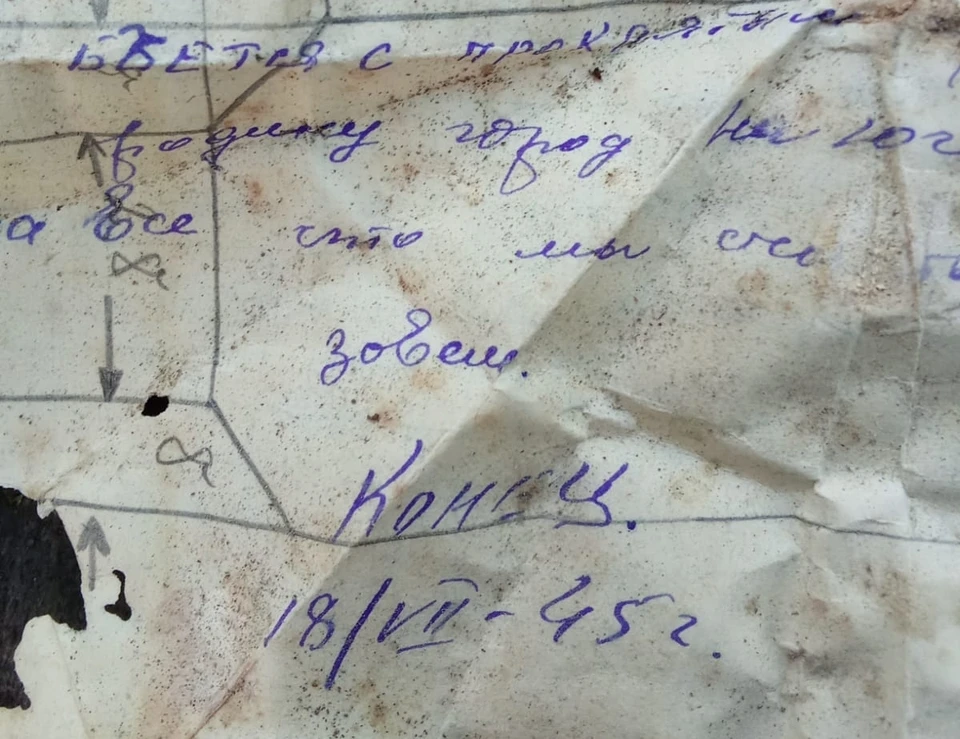 БЬЕТСЯ с проклятым
родину город на юг
а все что мы
зовем.
Конец.
18/VII-45г.